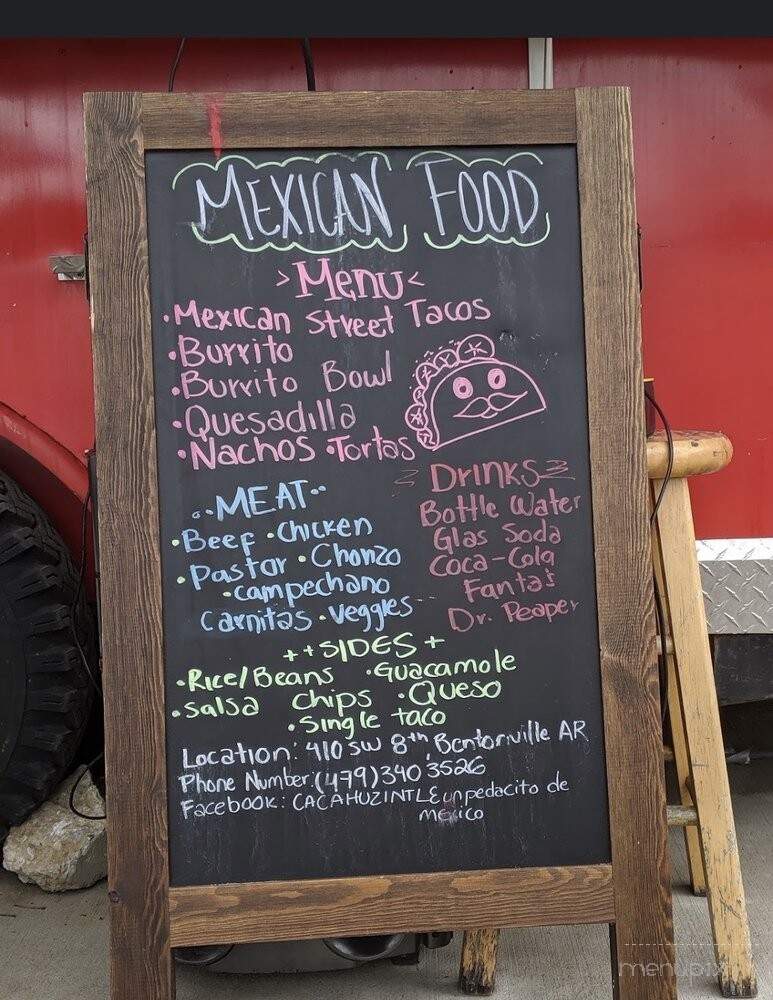 MEXICAN FOOD
>Menu<
•Mexican Street Tacos
•Burrito
•Burrito Bowl
•Quesadilla
•Nachos •Tortas
MEAT
•Beef •Chicken
•Pastor •Chorizo
•campechano
Carnitas •Veggies
DRINKS
Bottle Water
Glas Soda
Coca-Cola
Fanta's
Dr. Peaper
++SIDES+
•Rice/Beans •Guacamole
•Salsa Chips •Queso
•Single taco
Location: 410 SW 8th, Bentonville AR
Phone Number:(479)340 3526
Facebook: CACAHUZINTLE un pedacito de
mexico
menupix